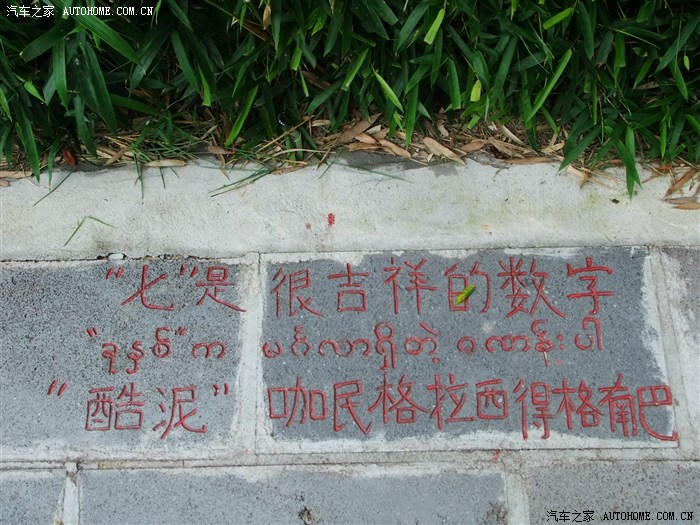 汽车之家 AUTOHOME.COM.CN 汽车之家 AUTOHOME.COM.CN
"七"是很吉祥的数字
"ခုနှစ်" က မင်္ဂလာရှိတဲ့ ဂဏန်းပါ
"酷泥" 咖民格拉西得格南巴
汽车之家 AUTOHOME.COM.CN